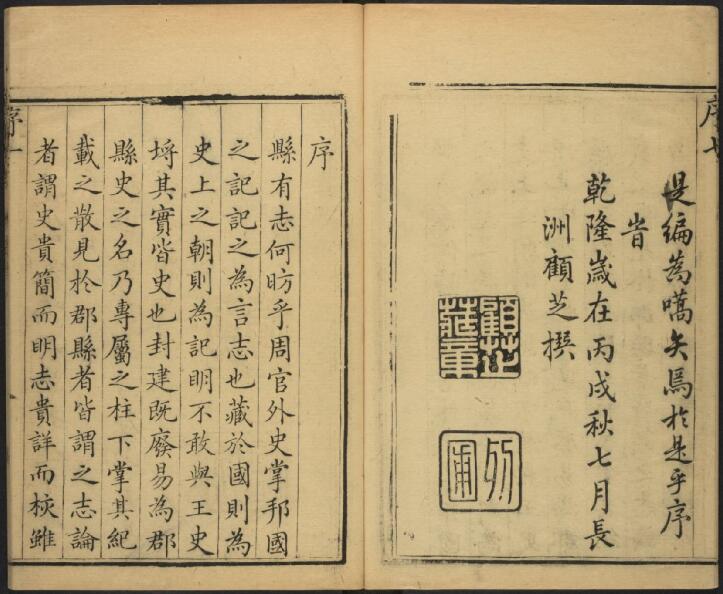 序七
是編為嚆矢焉於是乎序
旹
乾隆歲在丙戌秋七月長
洲顧芝撰
顧芝
序
縣有志何昉乎周官外史掌邦國
之記記之為言志也藏於國則為
史上之朝則為記明不敢與王史
埒其實皆史也封建既廢易為郡
縣史之名乃專屬之柱下掌其紀
載之散見於郡縣者皆謂之志論
者謂史貴簡而明志貴詳而核雖
序一